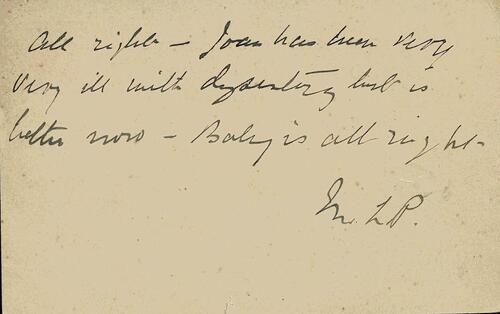 All right – Joan has been very
very ill with dysentery but is
better now – Baby is all right –
M. L. P.